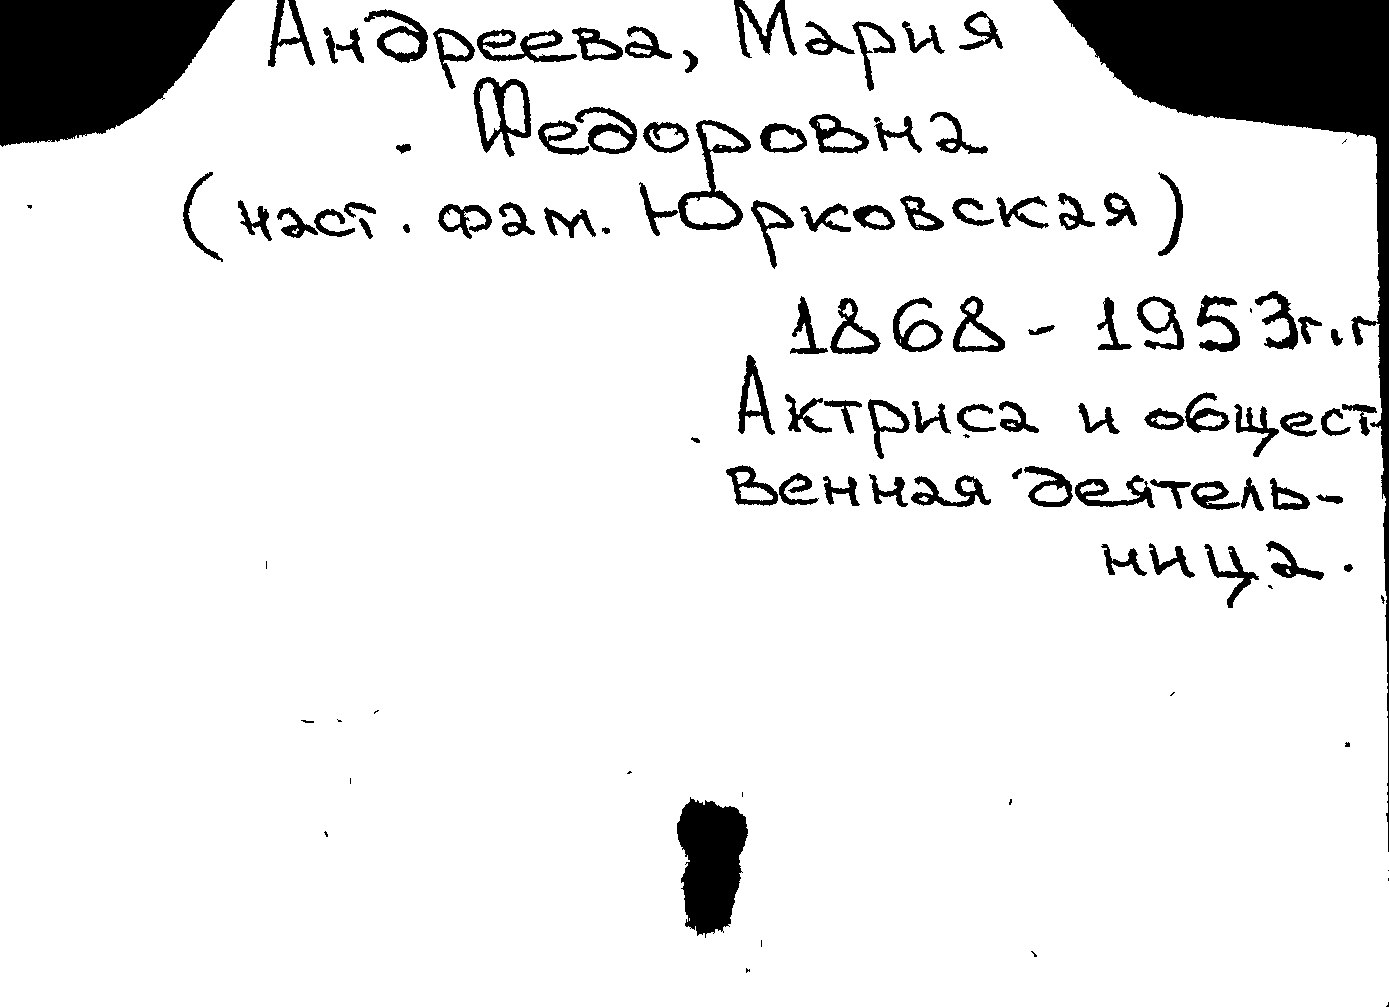 Андреева, Мария
Федоровна
(наст. фам. Юрковская)
1868 - 1953г.г
Актриса и общест
венная деятель-
ница.